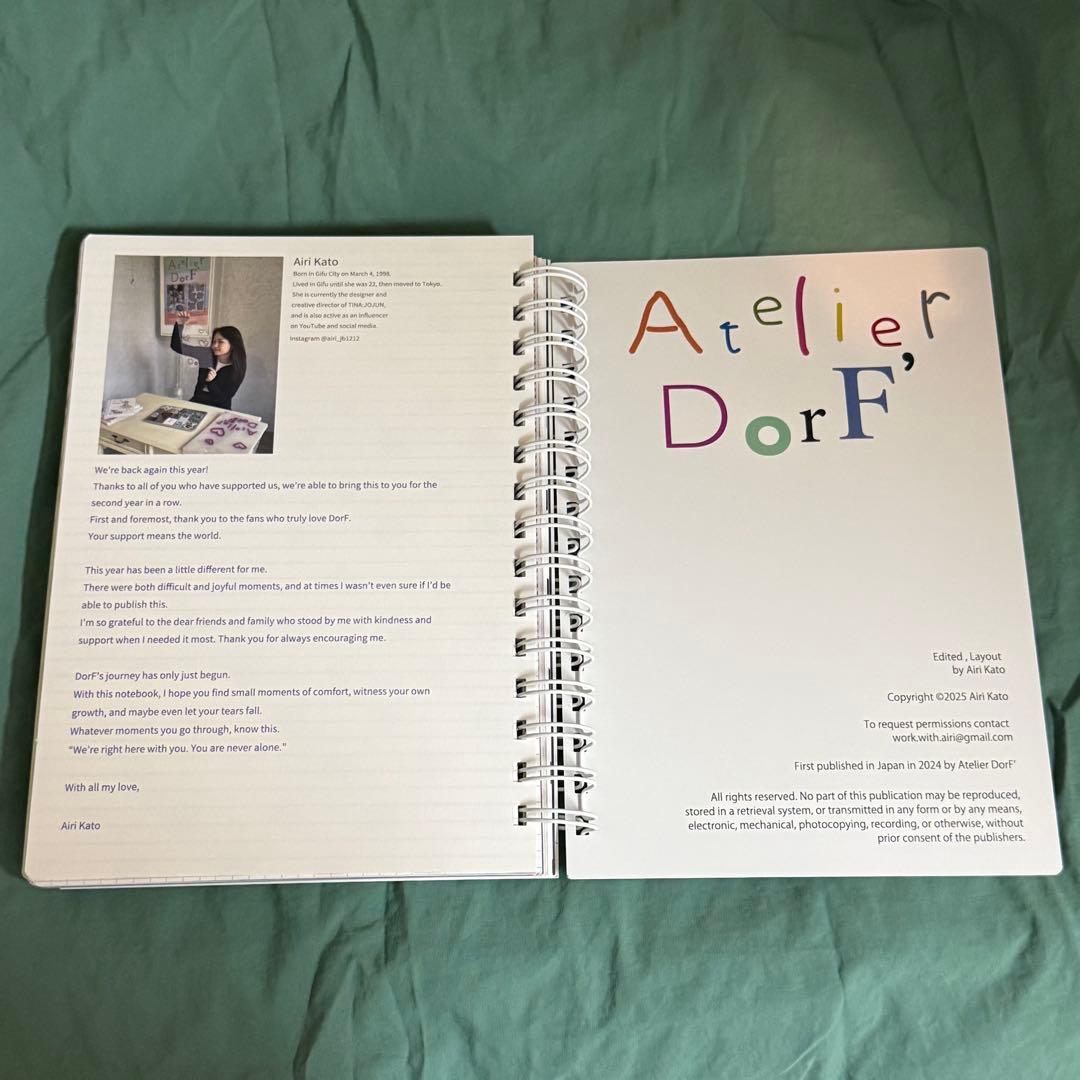 Airi Kato
Born in Gifu City on March 4, 1998.
Lived in Gifu until she was 22, then moved to Tokyo.
She is currently the designer and
creative director of TINA:JOJUN,
and is also active as an influencer
on YouTube and social media.
Instagram @airi_jb1212
Atelier
DorF
We're back again this year!
Thanks to all of you who have supported us, we're able to bring this to you for the
second year in a row.
First and foremost, thank you to the fans who truly love DorF.
Your support means the world.
This year has been a little different for me.
There were both difficult and joyful moments, and at times I wasn't even sure if I'd be
able to publish this.
I'm so grateful to the dear friends and family who stood by me with kindness and
support when I needed it most. Thank you for always encouraging me.
DorF's journey has only just begun.
With this notebook, I hope you find small moments of comfort, witness your own
growth, and maybe even let your tears fall.
Whatever moments you go through, know this.
"We're right here with you. You are never alone."
With all my love,
Airi Kato
Atelier
DorF'
Edited , Layout
by Airi Kato
Copyright ©2025 Airi Kato
To request permissions contact
work.with.airi@gmail.com
First published in Japan in 2024 by Atelier DorF'
All rights reserved. No part of this publication may be reproduced,
stored in a retrieval system, or transmitted in any form or by any means,
electronic, mechanical, photocopying, recording, or otherwise, without
prior consent of the publishers.